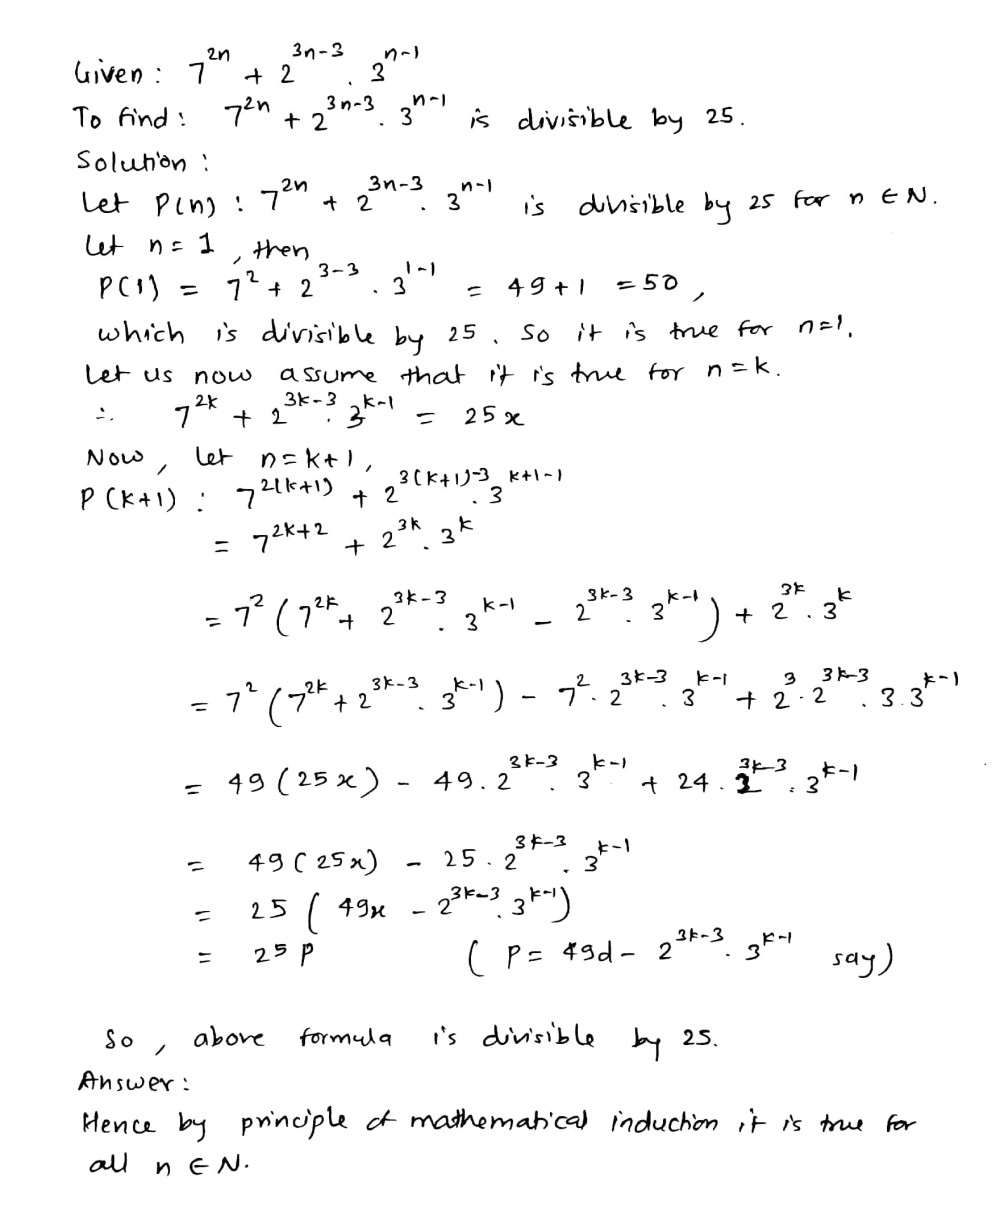 Given : 7^{2n} + 2^{3n-3} . 3^{n-1}
To find : 7^{2n} + 2^{3n-3} . 3^{n-1} is divisible by 25.
Solution :
Let P(n) : 7^{2n} + 2^{3n-3} . 3^{n-1} is divisible by 25 for n ∈ N.
Let n = 1 , then
P(1) = 7^2 + 2^{3-3} . 3^{1-1} = 49 + 1 = 50 ,
which is divisible by 25 . So it is true for n=1.
Let us now assume that it is true for n = k.
∴ 7^{2k} + 2^{3k-3} . 3^{k-1} = 25x
Now , let n = k+1 ,
P(k+1) : 7^{2(k+1)} + 2^{3(k+1)-3} . 3^{k+1-1}
= 7^{2k+2} + 2^{3k} . 3^k
= 7^2 ( 7^{2k} + 2^{3k-3} . 3^{k-1} - 2^{3k-3} . 3^{k-1} ) + 2^{3k} . 3^k
= 7^2 ( 7^{2k} + 2^{3k-3} . 3^{k-1} ) - 7^2 . 2^{3k-3} . 3^{k-1} + 2^3 . 2^{3k-3} . 3 . 3^{k-1}
= 49 ( 25x ) - 49 . 2^{3k-3} . 3^{k-1} + 24 . 2^{3k-3} . 3^{k-1}
= 49 ( 25x ) - 25 . 2^{3k-3} . 3^{k-1}
= 25 ( 49x - 2^{3k-3} . 3^{k-1} )
= 25 p ( p = 49d - 2^{3k-3} . 3^{k-1} say )
So , above formula is divisible by 25.
Answer :
Hence by principle of mathematical induction it is true for
all n ∈ N.